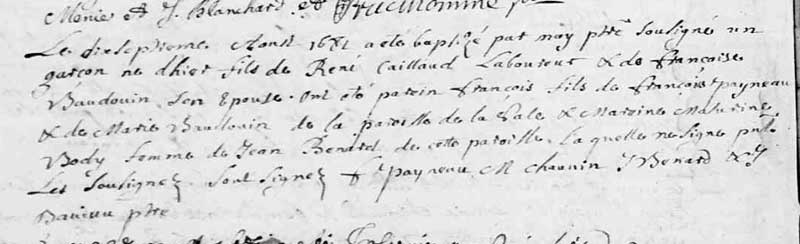 Menie et J. Blanchard et
Le diesepteme Aoust 1681 a eté baptizé par moy pbre sousigné un
garçon ne dhier fils de René Caillaud Laboureur & de françoise
Baudouin son Epouse. Ont eté parein françois fils de françois payneau
& de Marie Baudouin de la paroisse de la & Mareine Mathurine
Body femme de Jean Benard de cette paroisse. Laquelle ne signe
Les sousignez sont signez f. payneau M Chauvin J Benard & J
pbre